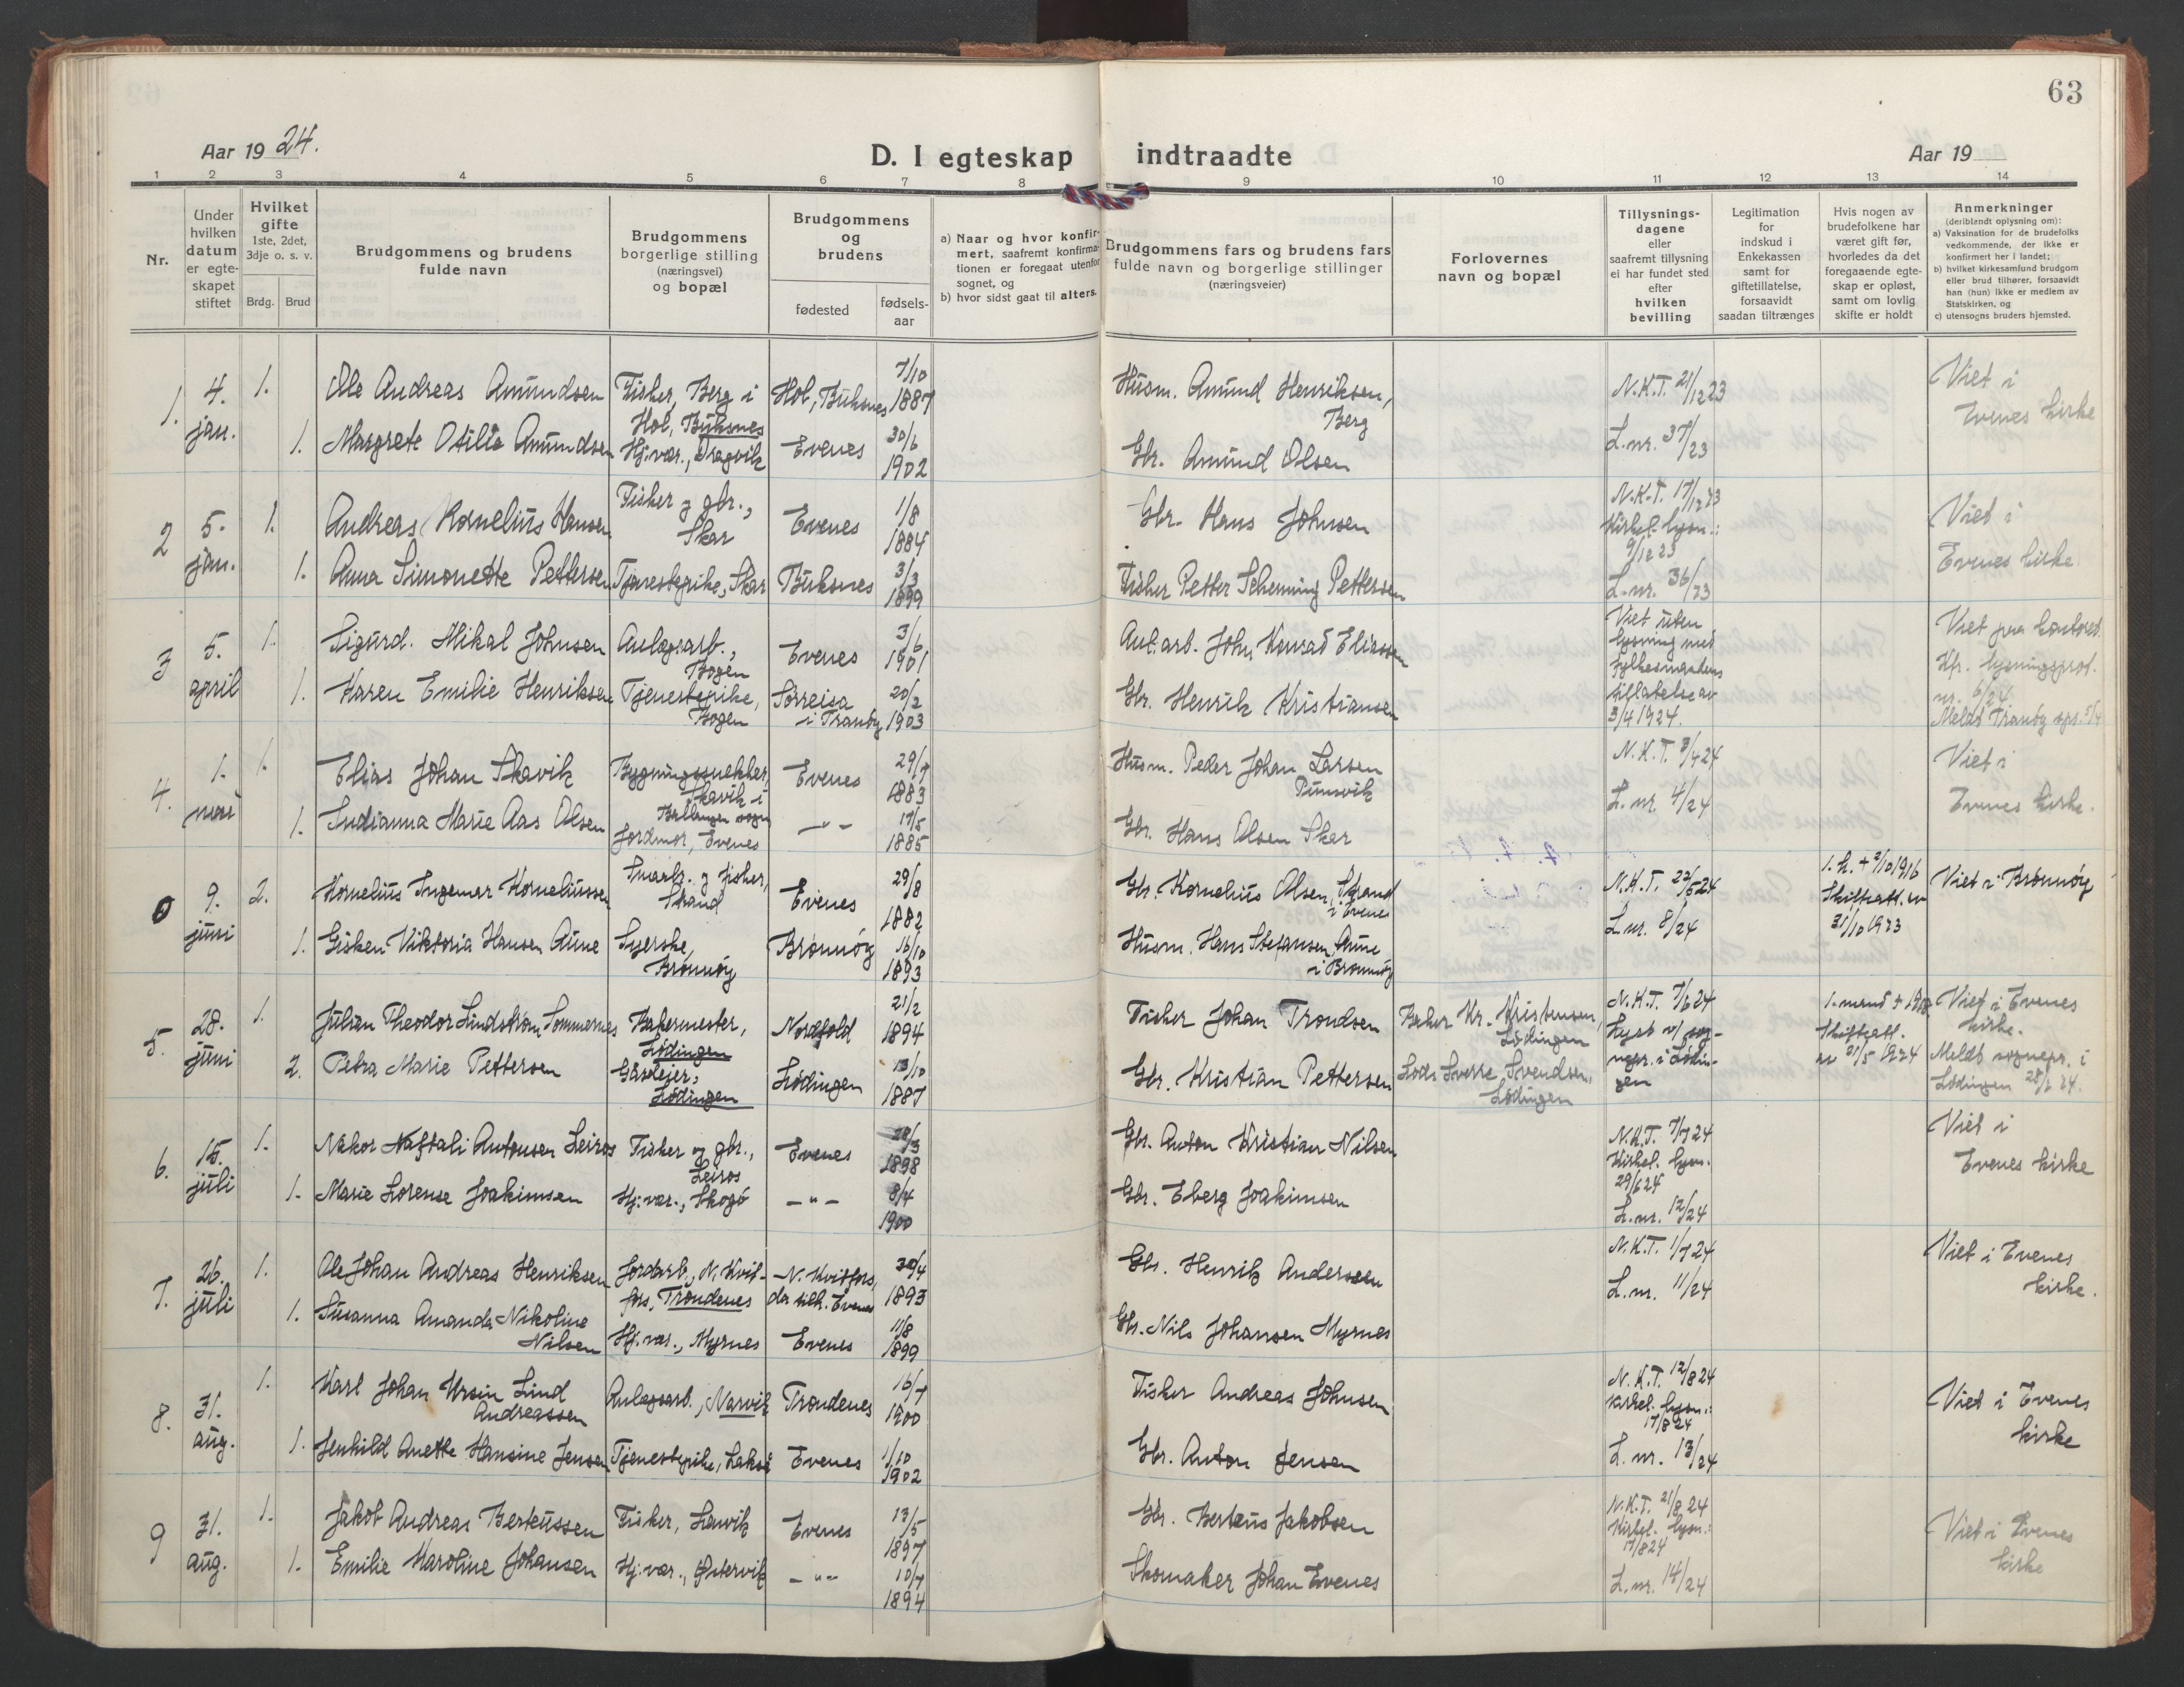 63
Aar 19 24.
D. I egteskap indtraadte
Aar 19
1 2 3 4 5 6 7 8 9 10 11 12 13 14
Nr.
Under hvilken datum er egte-skapet stiftet
Hvilket gifte
1ste, 2det, 3dje o. s. v.
Brdg. Brud
Brudgommens og brudens
fulde navn
Brudgommens
borgerlige stilling
(næringsvei)
og bopæl
Brudgommens
og
brudens
fødested
fødsels-
aar
a) Naar og hvor konfir-
mert, saafremt konfirma-
tionen er foregaat utenfor
sognet, og
b) hvor sidst gaat til alters.
Brudgommens fars og brudens fars
fulde navn og borgerlige stillinger
(næringsveier)
Forlovernes
navn og bopæl
Tillysnings-
dagene
eller
saafremt tillysning
ei har fundet sted
efter
hvilken
bevilling
Legitimation
for
indskud i
Enkekassen
samt for
giftetillatelse,
forsaavidt
saadan tiltrænges
Hvis nogen av
brudefolkene har
været gift før,
hvorledes da det
foregaaende egte-
skap er opløst,
samt om lovlig
skifte er holdt
Anmerkninger
(deriblandt oplysning om):
a) Vaksination for de brudefolks
vedkommende, der ikke er
konfirmert her i landet;
b) hvilket kirkesamfund brudgom
eller brud tilhører, forsaavidt
han (hun) ikke er medlem av
Statskirken, og
c) utensogns bruders hjemsted.
1. 4. jan. 1. Ole Andreas Amundsen Fisker, Berg i Hol, Buksnes Hol, Buksnes 7/10 1887 Husm. Amund Henriksen, Berg N.K.T. 21/12 23 Viet i Evenes kirke
1. Margrete Otilie Amundsen Hj.vær., Dragvik Evenes 30/6 1902 Gbr. Amund Olsen L.nr. 37/23
2 5. jan. 1. Andreas Kornelius Hansen Fisker og gbr., Skar Evenes 1/8 1884 Gbr. Hans Johnsen N.K.T. 17/12 23 Kirkel. lysn.: 9/12 23 Viet i Evenes kirke
1. Anna Simonette Pettersen Tjenestepike, Skar Buksnes 3/3 1899 Fisker Petter Schenning Pettersen L.nr. 36/23
3 5. april 1. Sigurd Mikal Johnsen Anlægsarb., Bogen Evenes 3/6 1901 Anl.arb. John Konrad Eliassen Viet uten lysning med fylkesmandens tillatelse av 3/4 1924. Viet paa kontoret. Kfr. lysningsprot. nr. 6/24
1. Karen Emilie Henriksen Tjenestepike, Bogen Sørreisa i Tranöy 20/2 1903 Gbr. Henrik Kristiansen Meldt Tranöy spr. 5/4
4. 1. mai 1. Elias Johan Skavik Bygningssnekker, Skavik i Ballangen sogn Evenes 29/7 1883 Husm. Peder Johan Larsen Punsvik N.K.T. 3/4 24 Viet i Evenes kirke.
1. Indianna Marie Aas Olsen Jordmor, Evenes —"— 17/5 1885 Gbr. Hans Olsen Sker L.nr. 4/24
0 9. juni 2. Kornelius Ingemar Korneliussen Smaabr. og fisker, Strand Evenes 29/8 1882 Gbr. Kornelius Olsen, Strand i Evenes N.K.T. 22/5 24 1. h. + 2/10 1916 Skifteatt. av 31/10 1923 Viet i Brönnöy
1. Gisken Viktoria Hansen Aune Syerske, Brönnöy Brönnöy 16/10 1893 Husm. Hans Stefansen Aune i Brönnöy L.nr. 8/24
5. 28. juni 1. Julian Theodor Lindström Sommernes Bakermester, Lödingen Nordfold 21/2 1894 Fisker Johan Trondsen Baker Kr. Kristensen, Lödingen N.K.T. 7/6 24 Lyst v/ sog-nepr. i Lödin-gen 1. mand + Skifteatt. av 21/5 1924 Viet i Evenes kirke.
2. Petra Marie Pettersen Gårdeier, Lödingen Lödingen 13/10 1887 Gbr. Kristian Pettersen Lods Sverre Svendsen, Lödingen Meldt sognepr. i Lödingen 28/6 24.
6. 15. juli 1. Nekor Naftali Antonsen Leiros Fisker og gbr., Leiros Evenes 28/3 1898 Gbr. Anton Kristian Nilsen N.K.T. 7/7 24 Kirkel. lysn. 29/6 24 Viet i Evenes kirke
1. Marie Lorense Joakimsen Hj.vær., Skogö —"— 8/4 1900 Gbr. Eberg Joakimsen L.nr. 12/24
7. 26. juli 1. Ole Johan Andreas Henriksen Jordarb., N. Kvit-fors, Trondenes N. Kvitfors, da tilh. Evenes 30/4 1893 Gbr. Henrik Andersen N.K.T. 1/7 24 Viet i Evenes kirke.
1. Susanna Amanda Nikoline Nilsen Hj.vær., Myrnes Evenes 11/8 1899 Gbr. Nils Johansen Myrnes L.nr. 11/24
8. 31. aug. 1. Karl Johan Ursin Lind Andreassen Anlægsarb., Narvik Trondenes 16/7 1900 Fisker Andreas Johnsen N.K.T. 12/8 24 Kirkel. lysn.: 17/8 24 Viet i Evenes kirke
1. Jenhild Anette Hansine Jensen Tjenestepike, Lakså Evenes 1/10 1902 Gbr. Anton Jensen L.nr. 13/24
9 31. aug. 1. Jakob Andreas Berteussen Fisker, Lenvik Evenes 13/5 1897 Gbr. Berteus Jakobsen N.K.T. 21/8 24 Kirkel. lysn.: 17/8 24 Viet i Evenes kirke
1. Emilie Karoline Johansen Hj.vær., Østervik —"— 10/7 1894 Skomaker Johan Evenes L.nr. 14/24